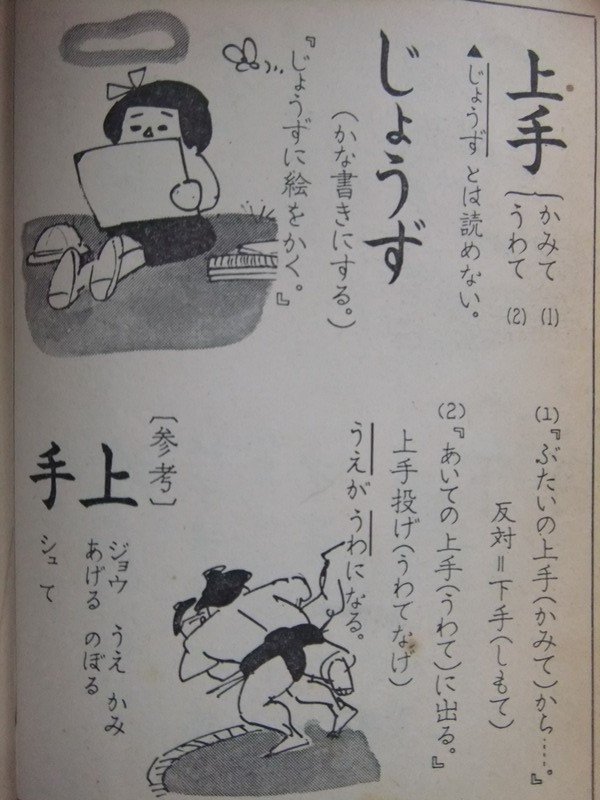 上手
かみて (1)
うわて (2)
▲じょうずとは読めない。
じょうず
(かな書きにする。)
『じょうずに絵をかく。』
(1)『ぶたいの上手(かみて)から……。』
反対=下手(しもて)
(2)『あいての上手(うわて)に出る。』
上手投げ(うわてなげ)
うえが うわになる。
〔参考〕
上
ジョウ うえ かみ
あげる のぼる
手
シュ て